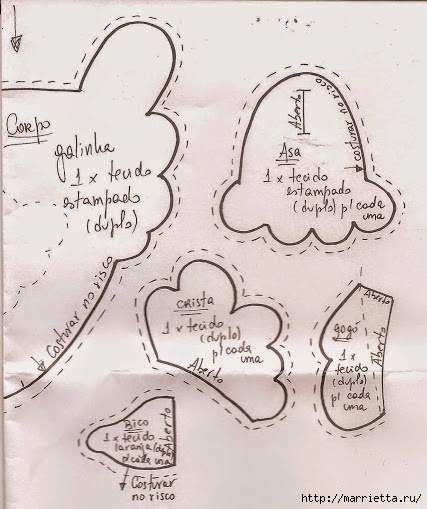 Corpo
galinha
1 x tecido
estampado
(duplo)
Costurar no risco
Aberto
costurar no risco
Asa
1 x tecido
estampado
(duplo) p/ cada
uma
CRISTA
1 x tecido
(duplo)
p/ cada
uma
Aberto
Aberto
gogó
1 x
tecido
(duplo)
p/ cada
uma
Aberto
Bico
1 x tecido
laranja (duplo)
p/ cada uma
Aberto
Costurar
no risco
http://marrietta.ru/